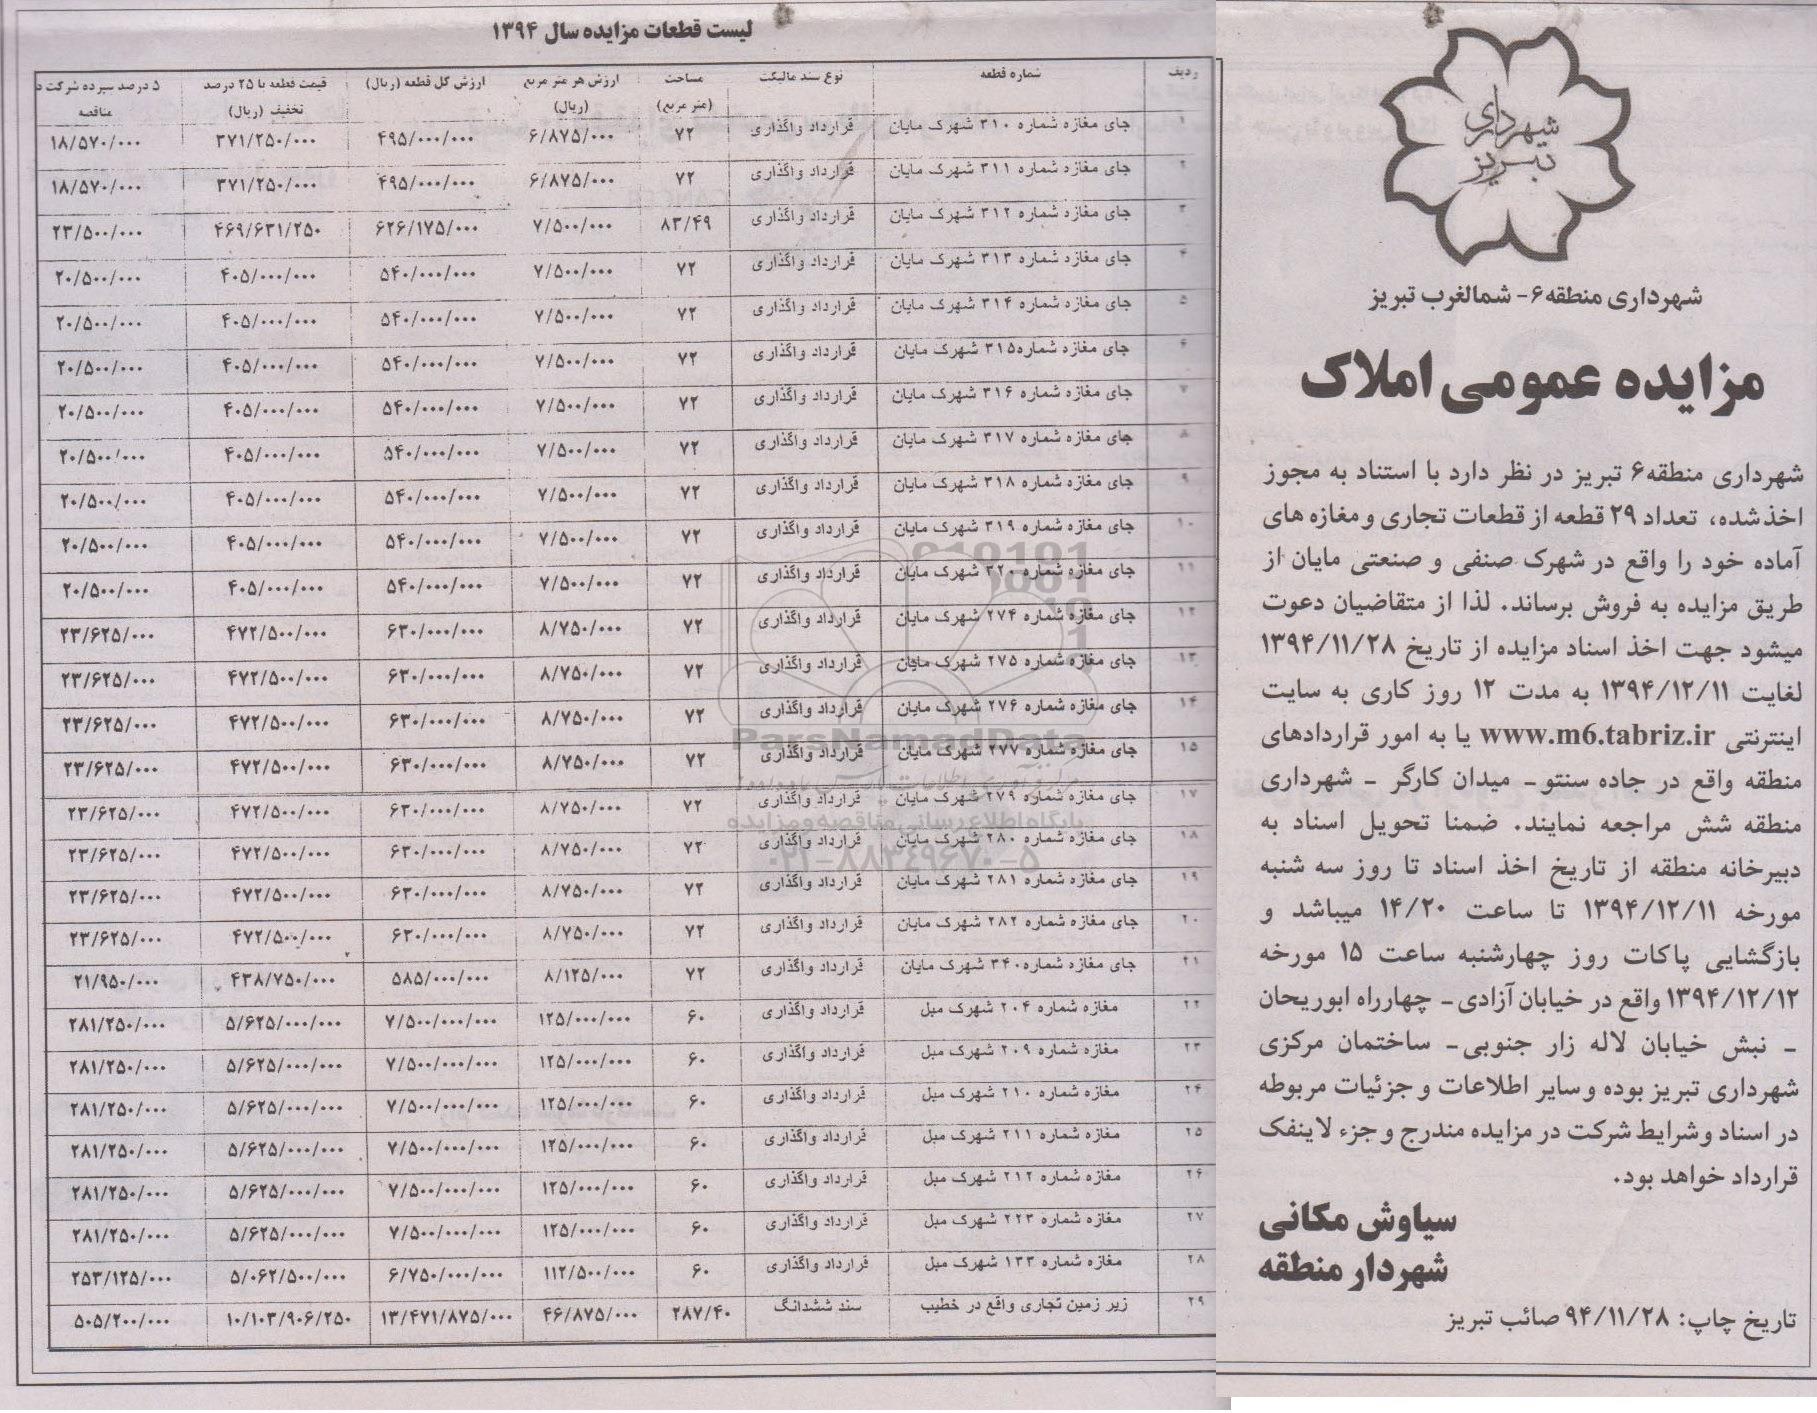 شهرداری تبریز
شهرداری منطقه۶- شمالغرب تبریز
مزایده عمومی املاک
شهرداری منطقه۶ تبریز در نظر دارد با استناد به مجوز
اخذ شده، تعداد ۲۹ قطعه از قطعات تجاری و مغازه های
آماده خود را واقع در شهرک صنفی و صنعتی مایان از
طریق مزایده به فروش برساند. لذا از متقاضیان دعوت
میشود جهت اخذ اسناد مزایده از تاریخ ۱۳۹۴/۱۱/۲۸
لغایت ۱۳۹۴/۱۲/۱۱ به مدت ۱۲ روز کاری به سایت
اینترنتی www.m6.tabriz.ir یا به امور قراردادهای
منطقه واقع در جاده سنتو- میدان کارگر - شهرداری
منطقه شش مراجعه نمایند. ضمنا تحویل اسناد به
دبیرخانه منطقه از تاریخ اخذ اسناد تا روز سه شنبه
مورخه ۱۳۹۴/۱۲/۱۱ تا ساعت ۱۴/۲۰ میباشد و
بازگشایی پاکات روز چهارشنبه ساعت ۱۵ مورخه
۱۳۹۴/۱۲/۱۲ واقع در خیابان آزادی- چهارراه ابوریحان
- نبش خیابان لاله زار جنوبی- ساختمان مرکزی
شهرداری تبریز بوده و سایر اطلاعات و جزئیات مربوطه
در اسناد و شرایط شرکت در مزایده مندرج و جزء لاینفک
قرارداد خواهد بود.
سیاوش مکانی
شهردار منطقه
تاریخ چاپ: ۹۴/۱۱/۲۸ صائب تبریز
لیست قطعات مزایده سال ۱۳۹۴
ردیف شماره قطعه نوع سند مالیکت مساحت (متر مربع) ارزش هر متر مربع (ریال) ارزش کل قطعه (ریال) قیمت قطعه با ۲۵ درصد تخفیف (ریال) ۵ درصد سپرده شرکت د مناقصه
۱ جای مغازه شماره ۳۱۰ شهرک مایان قرارداد واگذاری ۷۲ ۶/۸۷۵/۰۰۰ ۴۹۵/۰۰۰/۰۰۰ ۳۷۱/۲۵۰/۰۰۰ ۱۸/۵۷۰/۰۰۰
۲ جای مغازه شماره ۳۱۱ شهرک مایان قرارداد واگذاری ۷۲ ۶/۸۷۵/۰۰۰ ۴۹۵/۰۰۰/۰۰۰ ۳۷۱/۲۵۰/۰۰۰ ۱۸/۵۷۰/۰۰۰
۳ جای مغازه شماره ۳۱۲ شهرک مایان قرارداد واگذاری ۸۳/۴۹ ۷/۵۰۰/۰۰۰ ۶۲۶/۱۷۵/۰۰۰ ۴۶۹/۶۳۱/۲۵۰ ۲۳/۵۰۰/۰۰۰
۴ جای مغازه شماره ۳۱۳ شهرک مایان قرارداد واگذاری ۷۲ ۷/۵۰۰/۰۰۰ ۵۴۰/۰۰۰/۰۰۰ ۴۰۵/۰۰۰/۰۰۰ ۲۰/۵۰۰/۰۰۰
۵ جای مغازه شماره ۳۱۴ شهرک مایان قرارداد واگذاری ۷۲ ۷/۵۰۰/۰۰۰ ۵۴۰/۰۰۰/۰۰۰ ۴۰۵/۰۰۰/۰۰۰ ۲۰/۵۰۰/۰۰۰
۶ جای مغازه شماره۳۱۵ شهرک مایان قرارداد واگذاری ۷۲ ۷/۵۰۰/۰۰۰ ۵۴۰/۰۰۰/۰۰۰ ۴۰۵/۰۰۰/۰۰۰ ۲۰/۵۰۰/۰۰۰
۷ جای مغازه شماره ۳۱۶ شهرک مایان قرارداد واگذاری ۷۲ ۷/۵۰۰/۰۰۰ ۵۴۰/۰۰۰/۰۰۰ ۴۰۵/۰۰۰/۰۰۰ ۲۰/۵۰۰/۰۰۰
۸ جای مغازه شماره ۳۱۷ شهرک مایان قرارداد واگذاری ۷۲ ۷/۵۰۰/۰۰۰ ۵۴۰/۰۰۰/۰۰۰ ۴۰۵/۰۰۰/۰۰۰ ۲۰/۵۰۰/۰۰۰
۹ جای مغازه شماره ۳۱۸ شهرک مایان قرارداد واگذاری ۷۲ ۷/۵۰۰/۰۰۰ ۵۴۰/۰۰۰/۰۰۰ ۴۰۵/۰۰۰/۰۰۰ ۲۰/۵۰۰/۰۰۰
۱۰ جای مغازه شماره ۳۱۹ شهرک مایان قرارداد واگذاری ۷۲ ۷/۵۰۰/۰۰۰ ۵۴۰/۰۰۰/۰۰۰ ۴۰۵/۰۰۰/۰۰۰ ۲۰/۵۰۰/۰۰۰
۱۱ جای مغازه شماره ۳۲۰ شهرک مایان قرارداد واگذاری ۷۲ ۷/۵۰۰/۰۰۰ ۵۴۰/۰۰۰/۰۰۰ ۴۰۵/۰۰۰/۰۰۰ ۲۰/۵۰۰/۰۰۰
۱۲ جای مغازه شماره ۲۷۴ شهرک مایان قرارداد واگذاری ۷۲ ۸/۷۵۰/۰۰۰ ۶۳۰/۰۰۰/۰۰۰ ۴۷۲/۵۰۰/۰۰۰ ۲۳/۶۲۵/۰۰۰
۱۳ جای مغازه شماره ۲۷۵ شهرک مایان قرارداد واگذاری ۷۲ ۸/۷۵۰/۰۰۰ ۶۳۰/۰۰۰/۰۰۰ ۴۷۲/۵۰۰/۰۰۰ ۲۳/۶۲۵/۰۰۰
۱۴ جای مغازه شماره ۲۷۶ شهرک مایان قرارداد واگذاری ۷۲ ۸/۷۵۰/۰۰۰ ۶۳۰/۰۰۰/۰۰۰ ۴۷۲/۵۰۰/۰۰۰ ۲۳/۶۲۵/۰۰۰
۱۵ جای مغازه شماره ۲۷۷ شهرک مایان قرارداد واگذاری ۷۲ ۸/۷۵۰/۰۰۰ ۶۳۰/۰۰۰/۰۰۰ ۴۷۲/۵۰۰/۰۰۰ ۲۳/۶۲۵/۰۰۰
۱۷ جای مغازه شماره ۲۷۹ شهرک مایان قرارداد واگذاری ۷۲ ۸/۷۵۰/۰۰۰ ۶۳۰/۰۰۰/۰۰۰ ۴۷۲/۵۰۰/۰۰۰ ۲۳/۶۲۵/۰۰۰
۱۸ جای مغازه شماره ۲۸۰ شهرک مایان قرارداد واگذاری ۷۲ ۸/۷۵۰/۰۰۰ ۶۳۰/۰۰۰/۰۰۰ ۴۷۲/۵۰۰/۰۰۰ ۲۳/۶۲۵/۰۰۰
۱۹ جای مغازه شماره ۲۸۱ شهرک مایان قرارداد واگذاری ۷۲ ۸/۷۵۰/۰۰۰ ۶۳۰/۰۰۰/۰۰۰ ۴۷۲/۵۰۰/۰۰۰ ۲۳/۶۲۵/۰۰۰
۲۰ جای مغازه شماره ۲۸۲ شهرک مایان قرارداد واگذاری ۷۲ ۸/۷۵۰/۰۰۰ ۶۳۰/۰۰۰/۰۰۰ ۴۷۲/۵۰۰/۰۰۰ ۲۳/۶۲۵/۰۰۰
۲۱ جای مغازه شماره۳۴۰ شهرک مایان قرارداد واگذاری ۷۲ ۸/۱۲۵/۰۰۰ ۵۸۵/۰۰۰/۰۰۰ ۴۳۸/۷۵۰/۰۰۰ ۲۱/۹۵۰/۰۰۰
۲۲ مغازه شماره ۲۰۴ شهرک مبل قرارداد واگذاری ۶۰ ۱۲۵/۰۰۰/۰۰۰ ۷/۵۰۰/۰۰۰/۰۰۰ ۵/۶۲۵/۰۰۰/۰۰۰ ۲۸۱/۲۵۰/۰۰۰
۲۳ مغازه شماره ۲۰۹ شهرک مبل قرارداد واگذاری ۶۰ ۱۲۵/۰۰۰/۰۰۰ ۷/۵۰۰/۰۰۰/۰۰۰ ۵/۶۲۵/۰۰۰/۰۰۰ ۲۸۱/۲۵۰/۰۰۰
۲۴ مغازه شماره ۲۱۰ شهرک مبل قرارداد واگذاری ۶۰ ۱۲۵/۰۰۰/۰۰۰ ۷/۵۰۰/۰۰۰/۰۰۰ ۵/۶۲۵/۰۰۰/۰۰۰ ۲۸۱/۲۵۰/۰۰۰
۲۵ مغازه شماره ۲۱۱ شهرک مبل قرارداد واگذاری ۶۰ ۱۲۵/۰۰۰/۰۰۰ ۷/۵۰۰/۰۰۰/۰۰۰ ۵/۶۲۵/۰۰۰/۰۰۰ ۲۸۱/۲۵۰/۰۰۰
۲۶ مغازه شماره ۲۱۲ شهرک مبل قرارداد واگذاری ۶۰ ۱۲۵/۰۰۰/۰۰۰ ۷/۵۰۰/۰۰۰/۰۰۰ ۵/۶۲۵/۰۰۰/۰۰۰ ۲۸۱/۲۵۰/۰۰۰
۲۷ مغازه شماره ۲۲۳ شهرک مبل قرارداد واگذاری ۶۰ ۱۲۵/۰۰۰/۰۰۰ ۷/۵۰۰/۰۰۰/۰۰۰ ۵/۶۲۵/۰۰۰/۰۰۰ ۲۸۱/۲۵۰/۰۰۰
۲۸ مغازه شماره ۱۳۳ شهرک مبل قرارداد واگذاری ۶۰ ۱۱۲/۵۰۰/۰۰۰ ۶/۷۵۰/۰۰۰/۰۰۰ ۵/۰۶۲/۵۰۰/۰۰۰ ۲۵۳/۱۲۵/۰۰۰
۲۹ زیر زمین تجاری واقع در خطیب سند ششدانگ ۲۸۷/۴۰ ۴۶/۸۷۵/۰۰۰ ۱۳/۴۷۱/۸۷۵/۰۰۰ ۱۰/۱۰۳/۹۰۶/۲۵۰ ۵۰۵/۲۰۰/۰۰۰
ParsNamadData
پایگاه اطلاع رسانی مناقصه و مزایده
۰۲۱-۸۸۳۴۹۶۷۰-۵